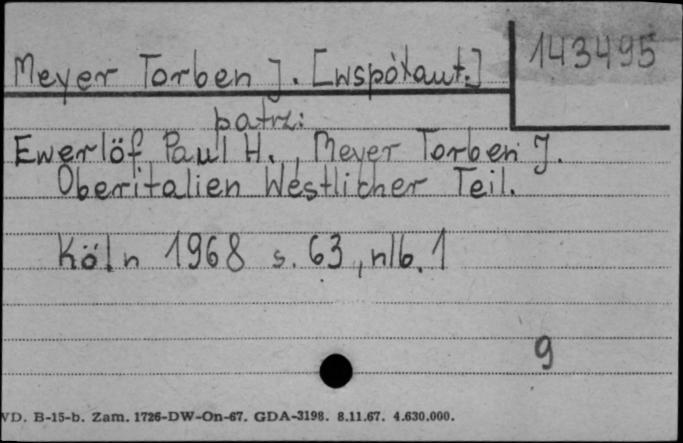 Meyer Torben J. [współaut.]
143495
patrz:
Ewerlöf Paul H., Meyer Torben J.
Oberitalien Westlicher Teil.
Köln 1968 s. 63, nlb. 1
9
VD. B-15-b. Zam. 1726-DW-On-67. GDA-3198. 8.11.67. 4.630.000.